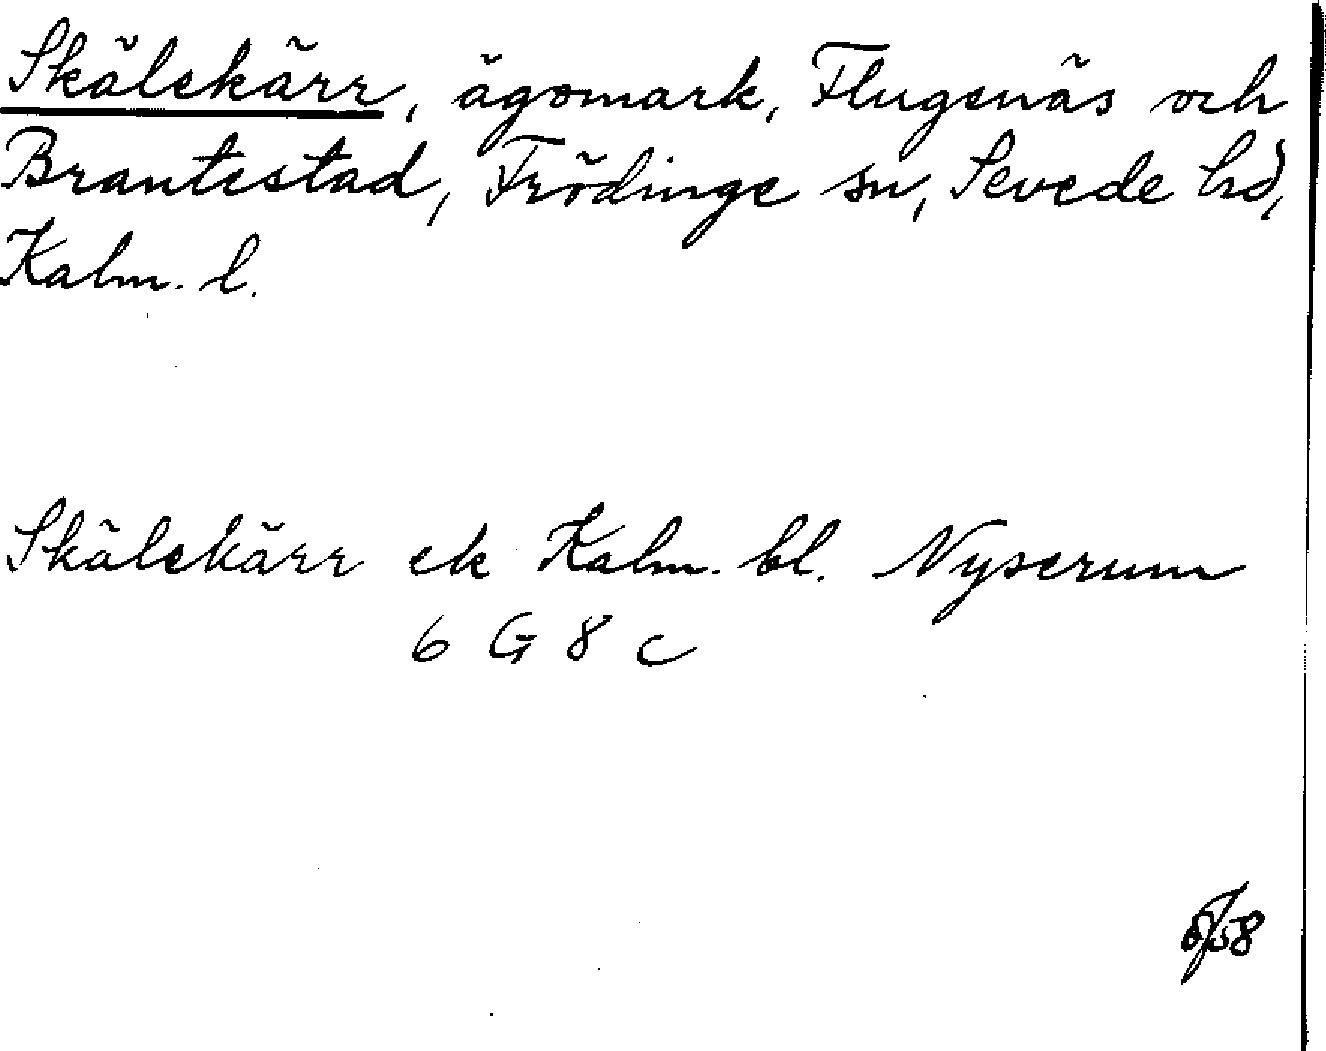 Skälekärr, ägomark, Flugenäs och
Brantestad, Frödinge sn, Sevede hd,
Kalm. l.
Skälekärr ek Kalm. bl. Nyserum
6 G 8 c